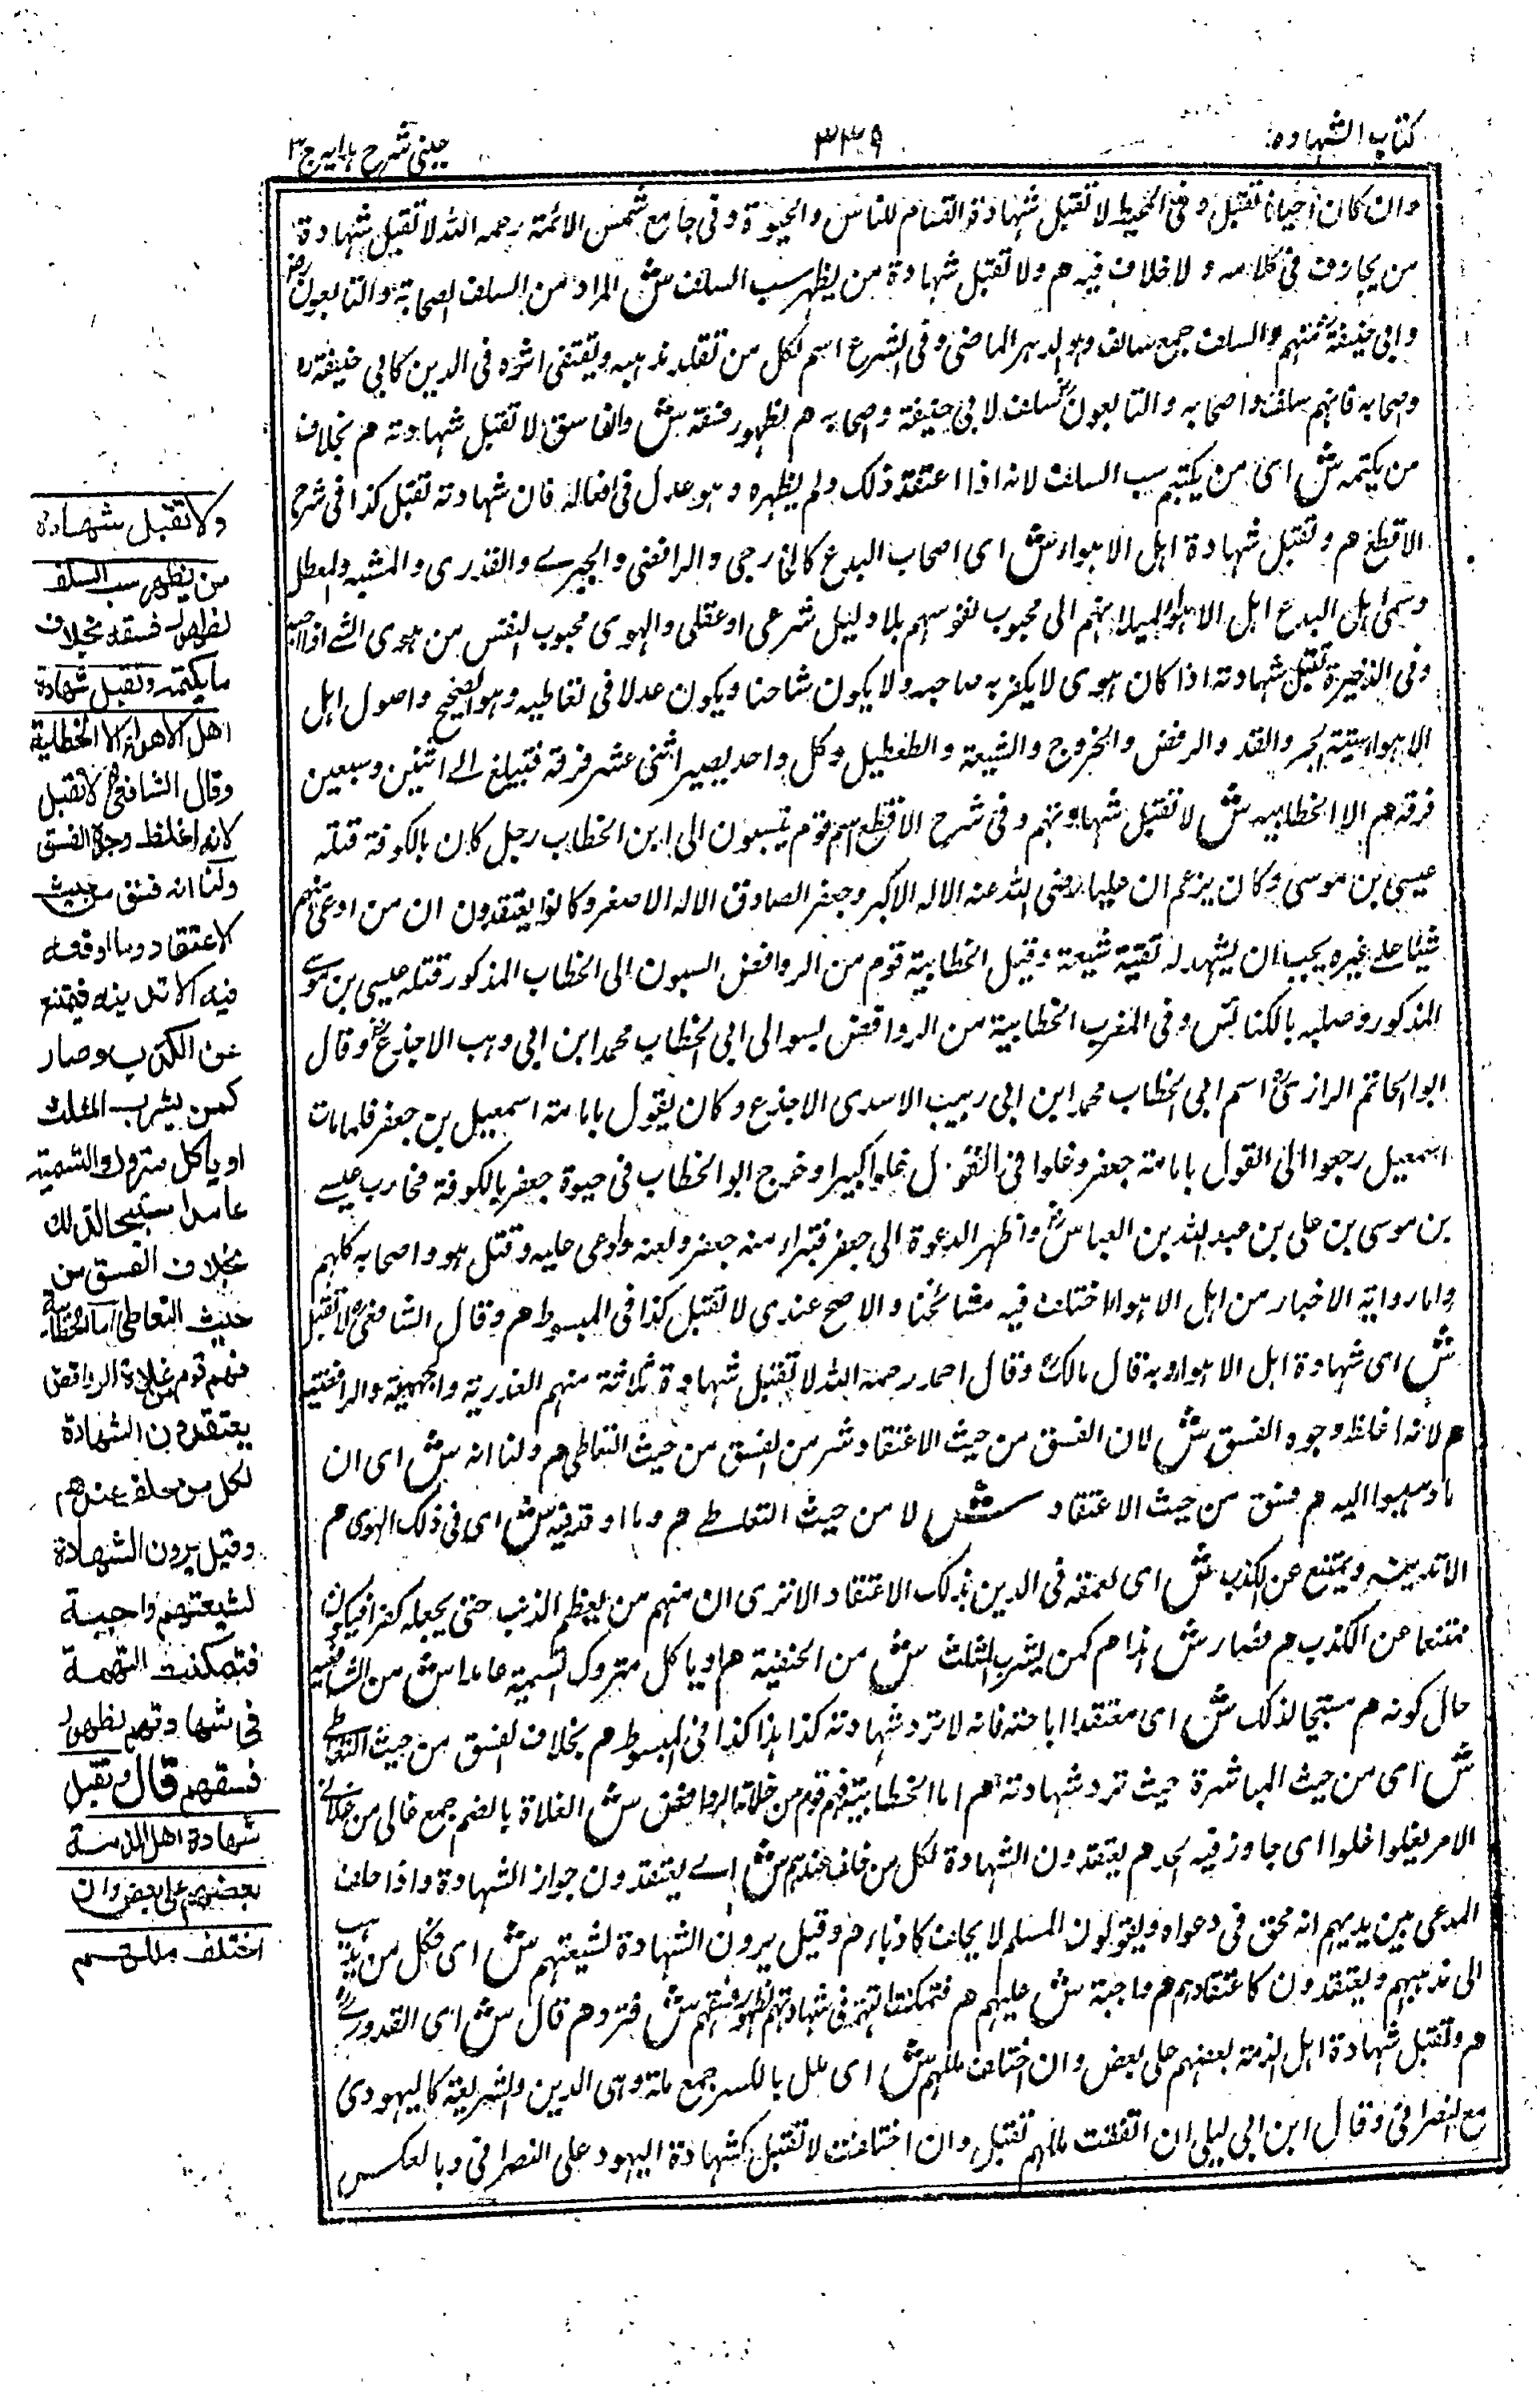 كتاب الشهادة
٣٣٩
عینی شرح ہدایہ ج ٣
وان كان احيانا تقبل وفى المحيط لا تقبل شهادة القسام للناس والحيوة وفى جامع شمس الائمة رحمه الله لا تقبل شهادة
من يجازف فى كلامه ولا خلاف فيه هم ولا تقبل شهادة من يظهر سب السلف ش المراد من السلف الصحابة والتابعون رض
وابى حنيفة منهم والسلف جمع سالف وهو الدهر الماضى وفى الشرع اسم لكل من تقلد مذهبه ويقتفى اثره فى الدين كابى حنيفة رح
وصحابه فانهم سلف واصحابه والتابعون سلف لابى حنيفة وصحابه هم لظهور فسقه ش والفاسق لا تقبل شهادته هم بخلاف
من يكتمه ش اى من يكتم سب السلف لانه اذا اعتقد ذلك ولم يظهره وهو عدل فى افعاله فان شهادته تقبل كذا فى شرح
الاقطع هم وتقبل شهادة اهل الاهواء ش اى اصحاب البدع كالخارجى والرافضى والجبرے والقدرى والمشبه والمعطل
وسمى اهل البدع اهل الاهواء لميلانهم الى محبوب نفوسهم بلا دليل شرعى او عقلى والهوى محبوب النفس من هوى الشے اذا احبه
وفى الذخيرة تقبل شهادته اذا كان هوى لا يكفر به صاحبه ولا يكون شاحنا ويكون عدلا فى تعاطيه وهو الصحيح واصول اهل
الاهواء ستة الجبر والقدر والرفض والخروج والشيعة والطعطيل وكل واحد يصير اثنى عشر فرقة فتبلغ الے اثنين وسبعين
فرقة هم الا الخطابيه ش لا تقبل شهادتهم وفى شرح الاقطع هم قوم ينسبون الى ابن الخطاب رجل كان بالكوفة قتله
عيسى بن موسى وكان يزعم ان عليا رضى الله عنه الاله الاكبر وجعفر الصادق الاله الاصغر وكانوا يعتقدون ان من ادعى منهم
شيئا على غيره يجب ان يشهد له تقية شيعة وقيل الخطابية قوم من الروافض السبون الى الخطاب المذكور قتله عيسى بن موسے
المذكور وصلبه بالكنائس وفى المغرب الخطابية من الروافض لسبوا الى ابى الخطاب محمد ابن ابى وهب الاجذع وقال
ابو الحاتم الرازى اسم ابى الخطاب محمد ابن ابى ربيب الاسدى الاجذع وكان يقول بامامته اسمعيل بن جعفر فلما مات
اسمعيل رجعوا الى القول بامامته جعفر وغلوا فى القول غلوا كبيرا وخرج ابو الخطاب فى حيوة جعفر بالكوفة فحارب عيسے
بن موسى بن على بن عبد الله بن العباس واظهر الدعوة الى جعفر فتبراء منه جعفر ولعنه وادعى عليه وقتل هو واصحابه كلهم
واما رواية الاخبار من اهل الاهواء اختلف فيه مشائخنا والاصح عندى لا تقبل كذا فى المبسوط هم وقال الشافعى رح لا تقبل
ش اى شهادة اهل الاهواء وبه قال مالك وقال احمد رحمه الله لا تقبل شهادة ثلاثة منهم القدرية والجهمية والرافضية
هم لانه اغلظ وجوه الفسق ش لان الفسق من حيث الاعتقاد شر من الفسق من حيث التعاطى هم ولنا انه ش اى ان
ما ذهبوا اليه هم فسق من حيث الاعتقاد ش لا من حيث التعاطے هم وما اوقعه فيه ش اى فى ذلك الهوى هم
الا تدينه ويمتنع عن الكذب ش اى لعمقه فى الدين بذلك الاعتقاد الا ترى ان منهم من يعظم الذنب حتى يجعله كفرا فيكون
ممتنعا عن الكذب هم فصار ش هذا هم كمن يشرب المثلث ش من الحنفية هم او يا كل متروك التسمية عامدا ش من الشافعيه
حال كونه هم مستبيحا لذلك ش اى معتقدا اباحته فانه لا ترد شهادته كذا هذا كذا فى المبسوط هم بخلاف الفسق من حيث التعاطے
ش اى من حيث المباشرة حيث ترد شهادته هم اما الخطابية فهم قوم من غلاة الروافض ش الغلاة بالضم جمع غالى من غلا فے
الامر يغلوا غلوا اى جاوز فيه الحد هم يعتقدون الشهادة لكل من حلف عندهم ش اے يعتقدون جواز الشهادة واذا حلف
المدعى بين يديهم انه محق فى دعواه ويقولون المسلم لا يحلف كاذبا هم وقيل يرون الشهادة لشيعتهم ش اى لكل من يذهب
الى مذهبهم ويعتقدون كاعتقادهم هم واجبة ش عليهم هم فتمكنت التهمة فى شهادتهم لظهور فسقهم ش فترد هم قال ش اى القدورے
هم وتقبل شهادة اهل الذمة بعضهم على بعض وان اختلف مللهم ش اى ملل بالكسر جمع ملة وهى الدين والشريعة كاليهودى
مع النصرانى وقال ابن ابى ليلى ان اتفقت مللهم تقبل وان اختلفت لا تقبل كشهادة اليهود على النصرانى وبالعكس
ولا تقبل شهادة
من يظهر سب السلف
لظهور فسقه بخلاف
ما يكتمه وتقبل شهادة
اهل الاهواء الا الخطابية
وقال الشافعى رح لا تقبل
لانه اغلظ وجوه الفسق
ولنا انه فسق من حيث
الاعتقاد وما اوقعه
فيه الا تدينه فيمتنع
عن الكذب وصار
كمن يشرب المثلث
او ياكل متروك التسمية
عامدا مستبيحا لذلك
بخلاف الفسق من
حيث التعاطى اما الخطابية
فهم قوم من غلاة الروافض
يعتقدون الشهادة
لكل من حلف عندهم
وقيل يرون الشهادة
لشيعتهم واجبة
فتمكنت التهمة
فى شهادتهم لظهور
فسقهم قال وتقبل
شهادة اهل الذمة
بعضهم على بعض وان
اختلف مللهم